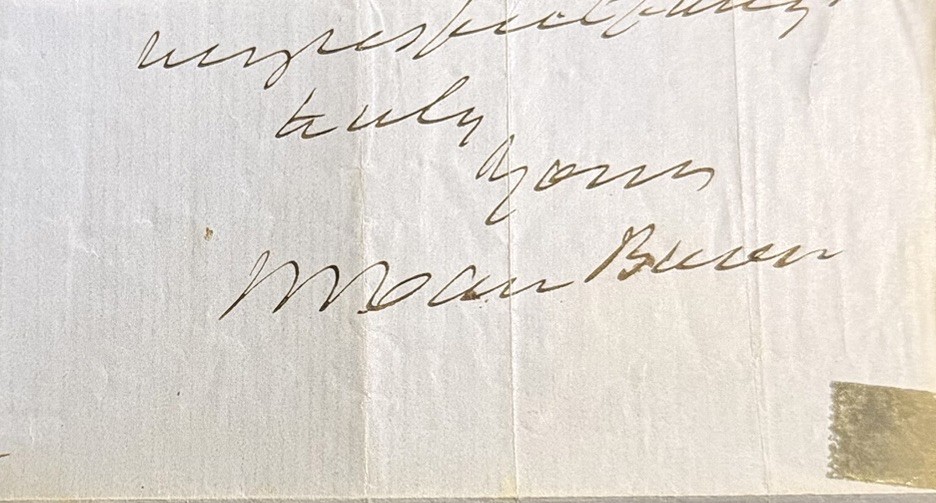 very respectfully
truly
yours
M Van Buren